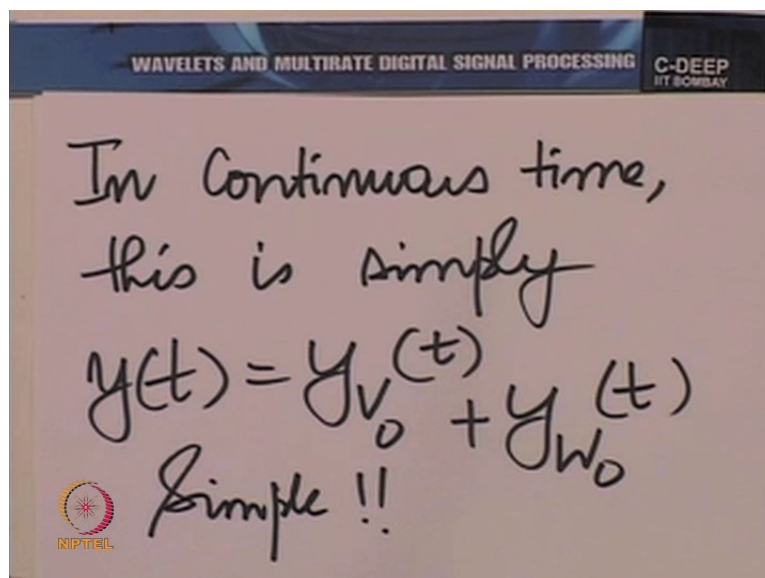 WAVELETS AND MULTIRATE DIGITAL SIGNAL PROCESSING
C-DEEP
IIT BOMBAY
In Continuous time,
this is simply
y(t) = y_{V_0}(t) + y_{W_0}(t)
Simple !!
NPTEL